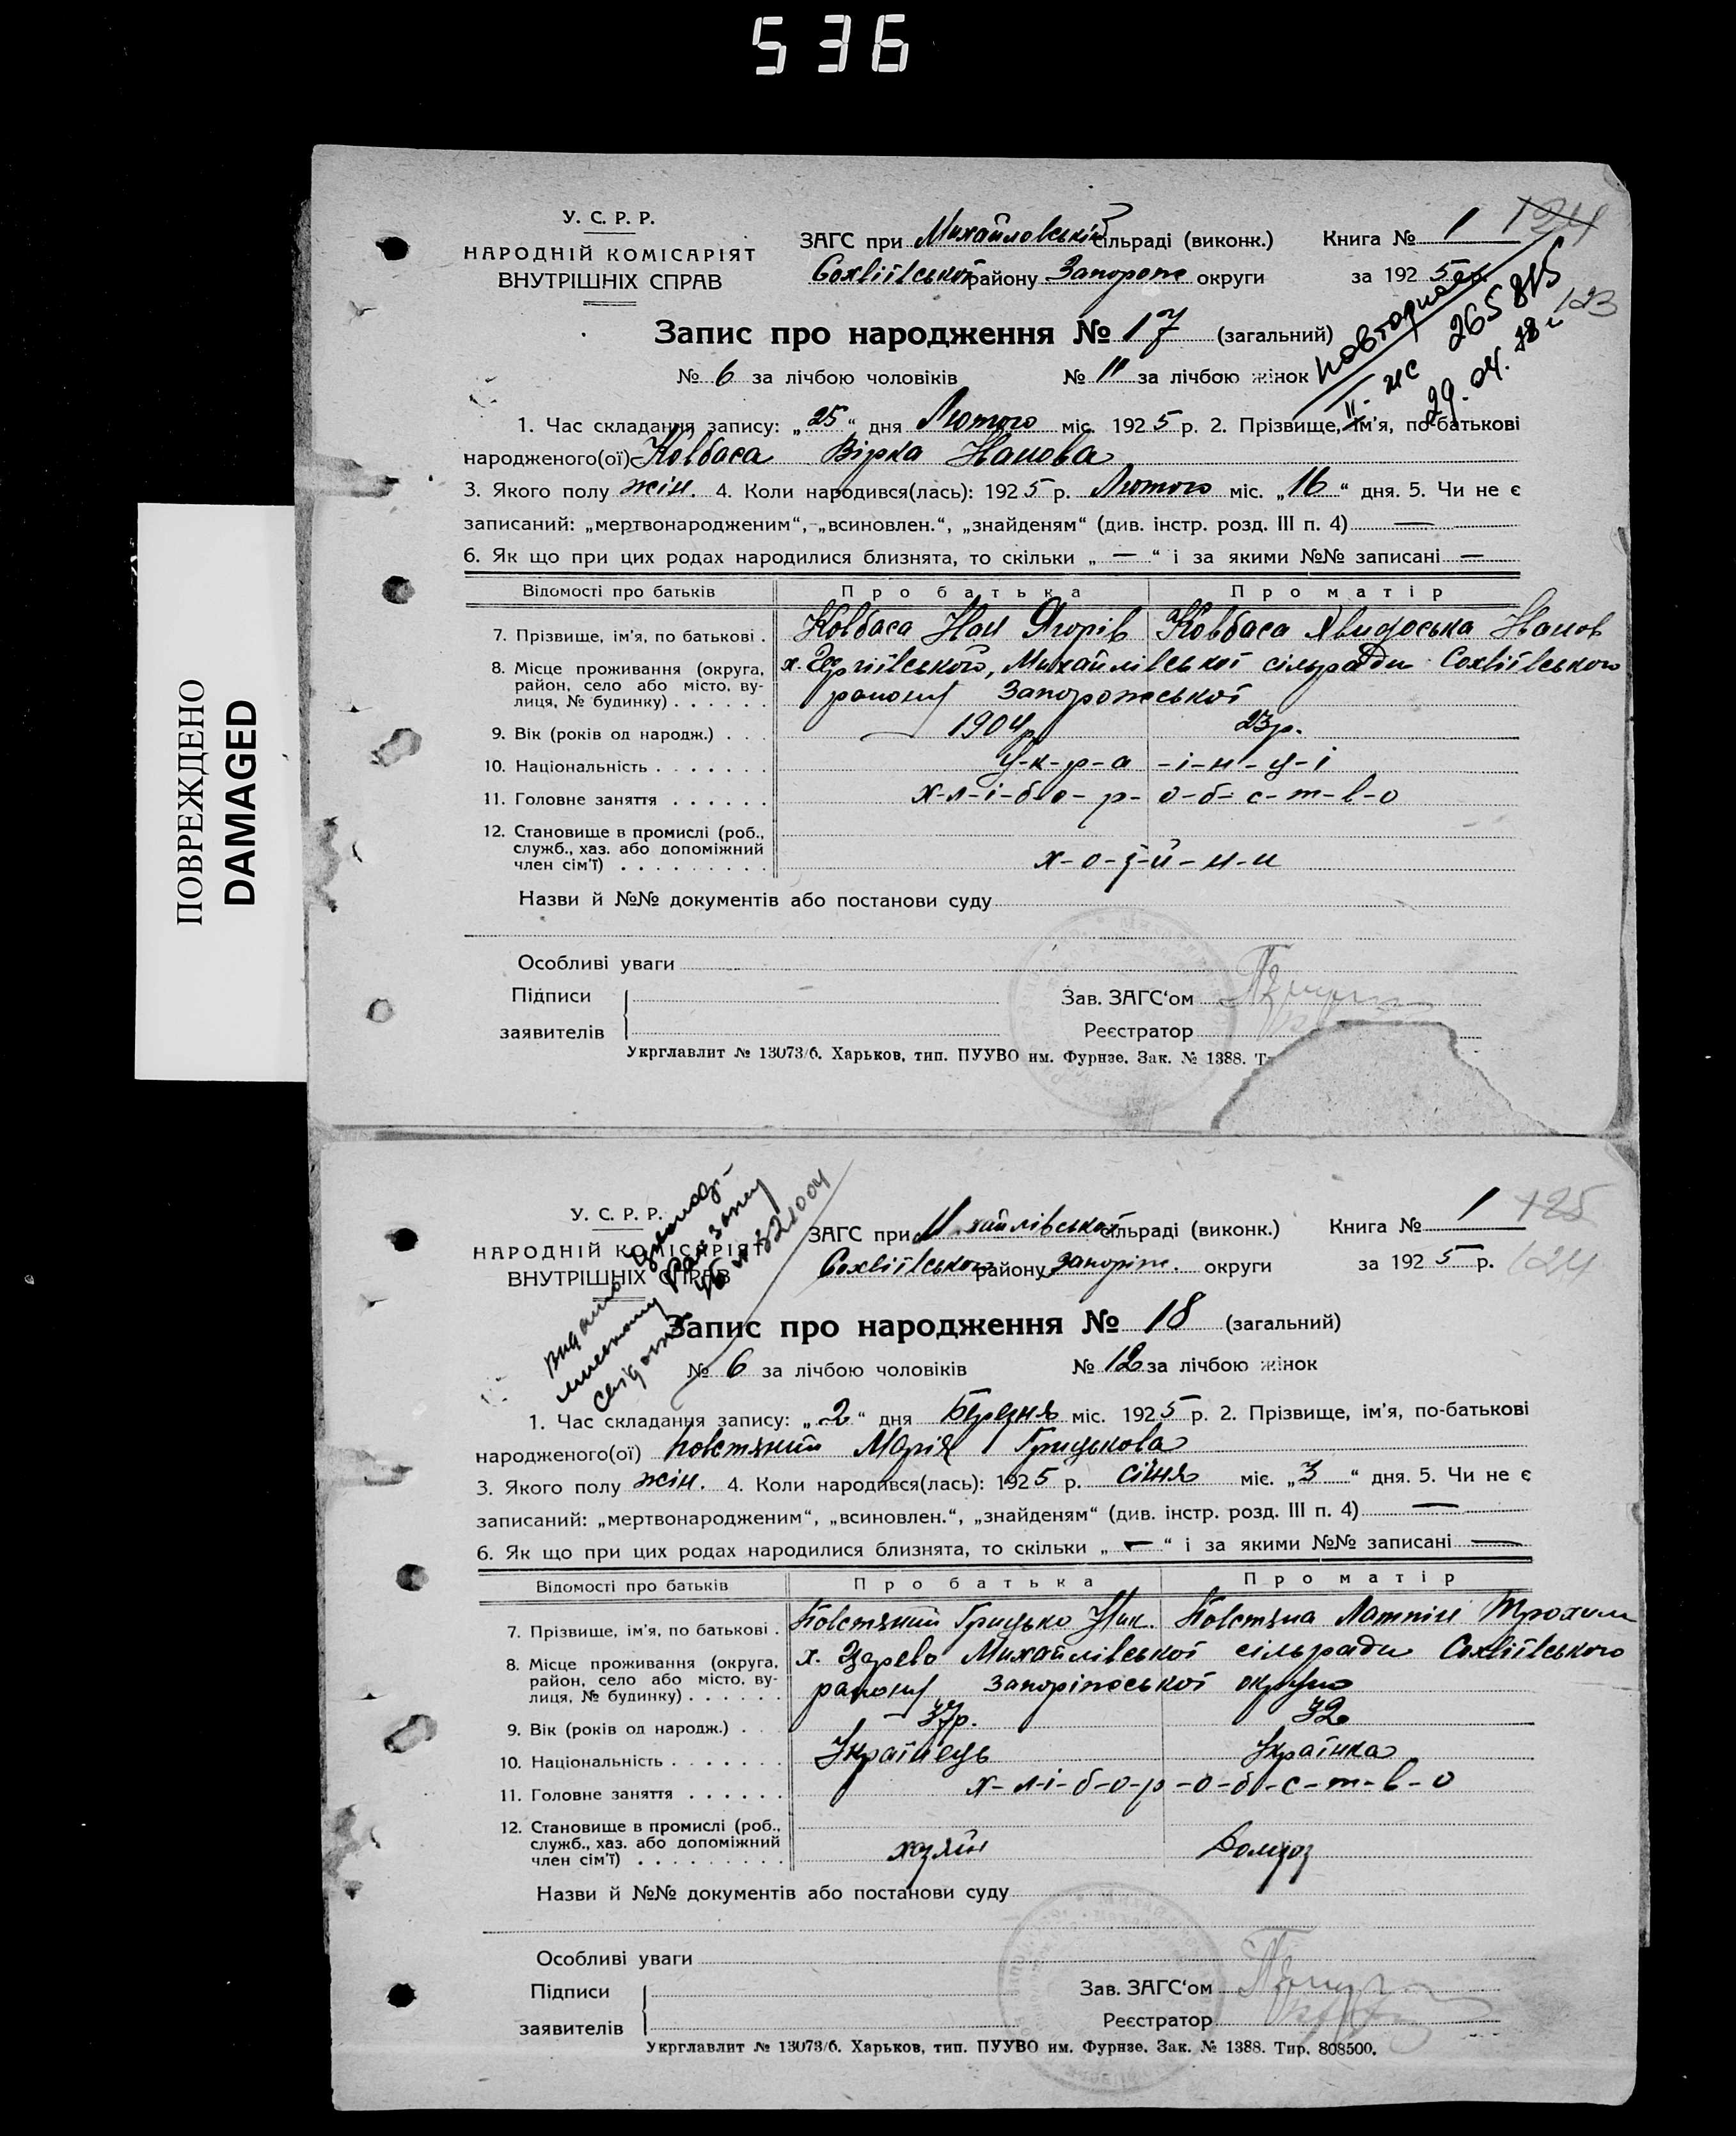 536
ПОВРЕЖДЕНО
DAMAGED
У. С. Р. Р.
НАРОДНІЙ КОМІСАРІЯТ
ВНУТРІШНІХ СПРАВ
ЗАГС при Михайловській сільраді (виконк.) Книга № 1 124
району Запорож округи за 1925 р. 123
Запис про народження № 17 (загальний)
№ 6 за лічбою чоловіків № 11 за лічбою жінок
повторно
II-ЖС 265815
29.04.78
1. Час складання запису: „25“ дня Лютого міс. 1925 р. 2. Прізвище, ім'я, по-батькові
народженого(ої) Ковбаса Вірка Іванова
3. Якого полу жін. 4. Коли народився(лась): 1925 р. Лютого міс. „16“ дня. 5. Чи не є
записаний: „мертвонародженим“, „всиновлен.“, „знайденям“ (див. інстр. розд. III п. 4) —
6. Як що при цих родах народилися близнята, то скільки „—“ і за якими №№ записані —
Відомості про батьків Про батька Про матір
7. Прізвище, ім'я, по батькові . Ковбаса Іван Ягорів Ковбаса Явидоська Іванов
8. Місце проживання (округа, район, село або місто, вулиця, № будинку) . . . . . . х. Михайлівської сільради
району Запорожської
9. Вік (років од народж.) . . . 1904р 23р.
10. Національність . . . . . . . У-к-р-а-і-н-ц-і
11. Головне заняття . . . . . . х-л-і-б-о-р-о-б-с-т-в-о
12. Становище в промислі (роб., служб., хаз. або допоміжний член сім'ї) . . . . . . . . . х-о-з-й-и-н
Назви й №№ документів або постанови суду
Особливі уваги
Підписи
заявителів
Зав. ЗАГС'ом
Реєстратор
Укрглавлит № 13073/6. Харьков, тип. ПУУВО им. Фурнзе. Зак. № 1388. Т
У. С. Р. Р.
НАРОДНІЙ КОМІСАРІЯТ
ВНУТРІШНІХ СПРАВ
ЗАГС при М хайлівської сільраді (виконк.) Книга № 1 125
району Запоріж. округи за 1925 р. 124
Запис про народження № 18 (загальний)
№ 6 за лічбою чоловіків № 12 за лічбою жінок
1. Час складання запису: „2“ дня Березня міс. 1925 р. 2. Прізвище, ім'я, по-батькові
народженого(ої) Повстяний Марія Грицькова
3. Якого полу жін. 4. Коли народився(лась): 1925 р. січня міс. „3“ дня. 5. Чи не є
записаний: „мертвонародженим“, „всиновлен.“, „знайденям“ (див. інстр. розд. III п. 4) —
6. Як що при цих родах народилися близнята, то скільки „—“ і за якими №№ записані —
Відомості про батьків Про батька Про матір
7. Прізвище, ім'я, по батькові . Повстяний Грицько Ник. Повстяна Трохим
8. Місце проживання (округа, район, село або місто, вулиця, № будинку) . . . . . . х. Михайлівської сільради
району Запоріжської округи
9. Вік (років од народж.) . . . 37р. 32
10. Національність . . . . . . . Українець Українка
11. Головне заняття . . . . . . х-л-і-б-о-р-о-б-с-т-в-о
12. Становище в промислі (роб., служб., хаз. або допоміжний член сім'ї) . . . . . . . . . хозяїн Домгоз
Назви й №№ документів або постанови суду
Особливі уваги
Підписи
заявителів
Зав. ЗАГС'ом
Реєстратор
Укрглавлит № 13073/6. Харьков, тип. ПУУВО им. Фурнзе. Зак. № 1388. Тир. 808500.